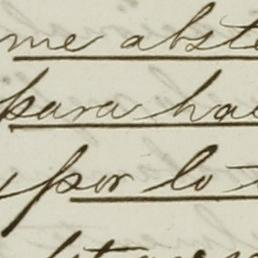 me abste
para hac
y por lo t